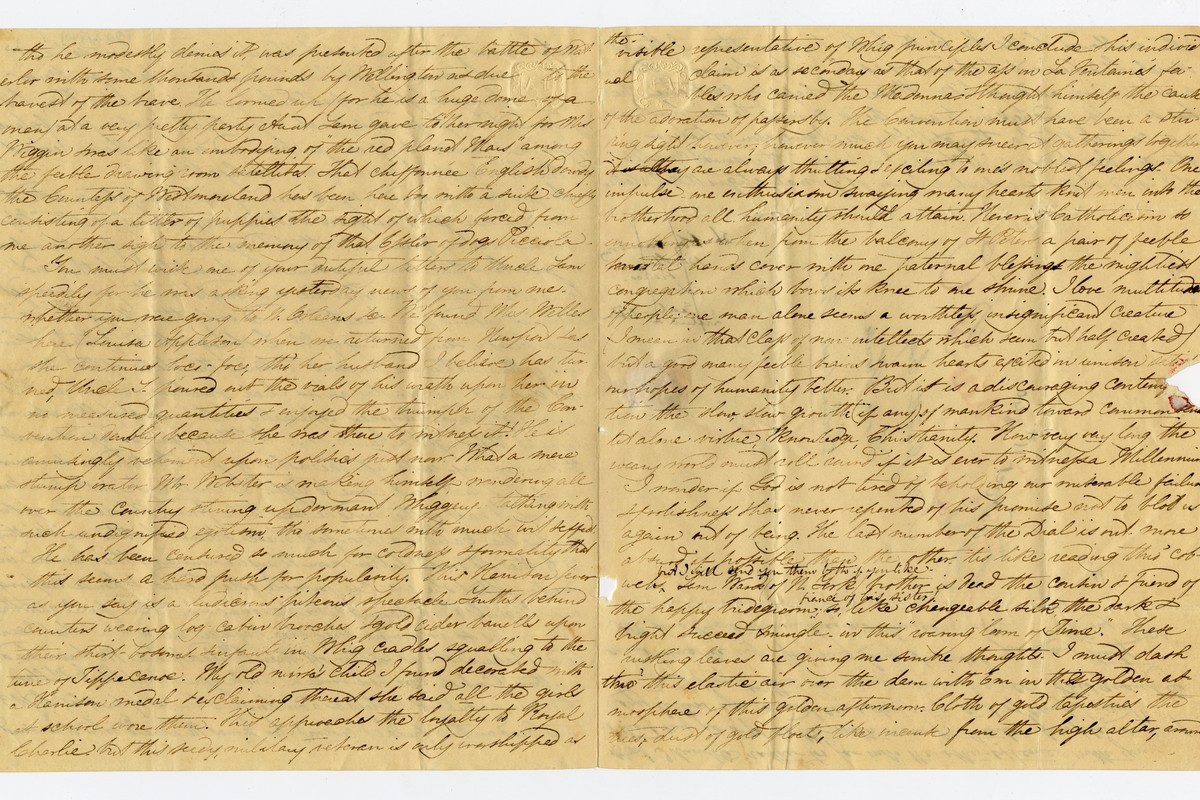 tho he modestly denies it, was presented after the battle of
with some thousand pounds by Wellington as due to the
bravest of the brave. He loomed up (for he is a huge dome of a
man) at a very pretty party Aunt Sam gave t'other night for Mrs
Wiggin was like an of the red planet Mars among
the feeble drawing room satellites. That English dowdy
the Countess of Westmoreland has been here too with a suite chiefly
consisting of a litter of puppies the sight of which forced from
me another sigh to the memory of that of dogs Picciola.
You must write me of your dutiful letters to Uncle Sam
speedily for he was asking yesterday news of you from me.
whether you were going to N. Orleans &c. We found Mrs Wells
here Louise Appleton when we returned from Newport has
she continues loco-foco, tho' her husband I believe has tur
ned, Uncle S. poured out the vials of his wrath upon her in
no measured quantities & enjoyed the triumph of the Con
vention doubly because she was there to witness it! He is
amusingly vehement upon politics just now. What a mere
stump orator Mr. Webster is making himself, wandering all
over the Country stirring up dormant Whiggery talking with
such undignified egotism, tho' sometimes with much
He has been censured so much for coldness & formality that
this seems a hard push for popularity. This Harrison fever
as you say is a ludicrous, piteous spectacle. behind
counters wearing log cabin broches & gold cider barrels upon
their shirt bosoms infants in Whig cradles squalling to the
tune of Tippecanoe. My old nurse's child I found decorated with
a Harrison medal & exclaiming thereat she said all the girls
at school wore them. This approaches the loyalty to Royal
Charlie but this seedy, military veteran is only worshipped as
the visible representative of Whig principles I conclude his individ
ual claim is as secondary as that of the ass in La Fontaine's fa
bles who carried the Madonna & thought himself the cause
of the adoration of passers by. The Convention must have been a stir
ring sight however much you may sneer at gatherings together
they are always thrilling & exciting to one's noblest feelings. One
impulse one enthusiasm swaying many hearts knit men into the
brotherhood all humanity should attain. Never is Catholicism so
when from the balcony of St Peters a pair of feeble
hands cover with one paternal blessing the mightiest
congregation which bows its knee to one shrine. I love multitudes
of people: one man alone seems a worthless, insignificant creature
(I mean in that class of non intellects which seem but half created)
but a good many feeble brains & warm hearts excited in unison
our hopes of humanity better. But it is a discouraging contem
tion the slow, slow growth (if any) of mankind toward common
let alone virtue, knowledge, Christianity. How very very long the
weary world must roll round if it is ever to witness a Millennium
I wonder if God is not tired of beholding our miserable failures
& foolishness & has never repented of his promise not to blot us
again out of being. The last number of the Dial is out more
than the other. tis like reading this Cob
but I will send you them both if you like.
web. Sam Ward of N. York's brother is dead the cousin & friend of
fiancé of his sister
the happy bridegroom: so, like changeable silk the dark &
bright succeed & mingle in this "roaring loom of Time." These
rustling leaves are giving me sombre thoughts. I must dash
thro' this elastic air over the dam with Em in the golden at
mosphere of this golden afternoon. Cloth of gold tapestries the
dust of gold floats, like incense from the high altar,